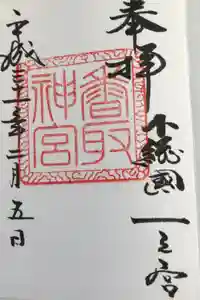 奉拝
下総國一之宮
香取神宮
平成三十一年二月五日